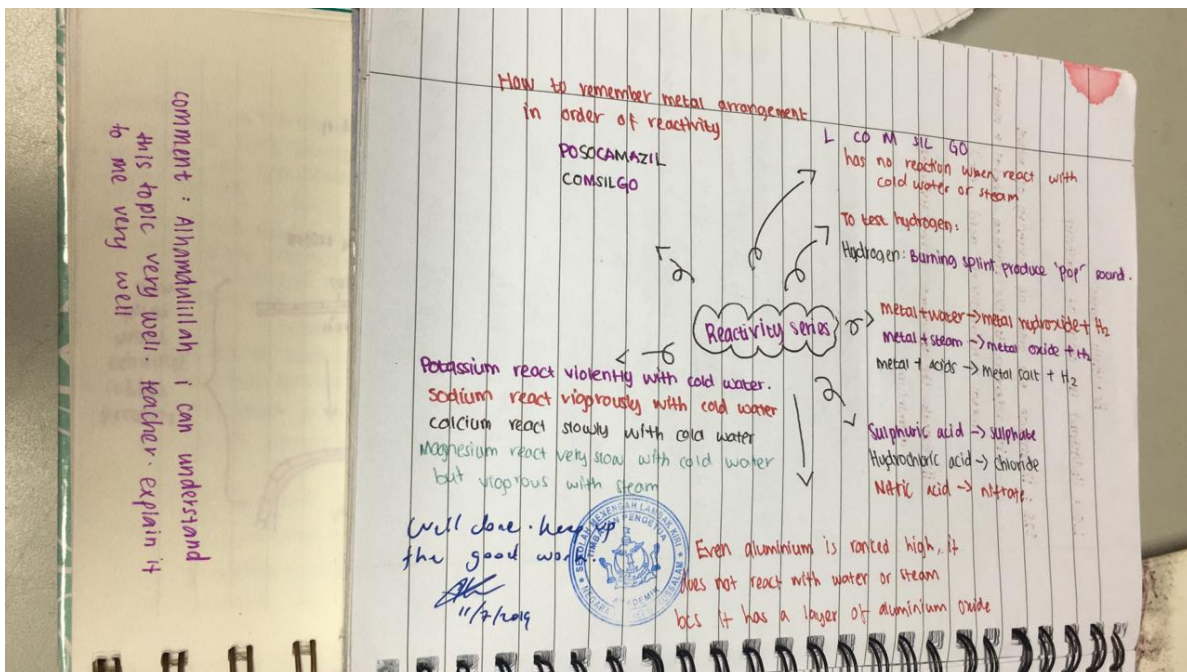 comment : Alhamdulillah i can understand
this topic very well. teacher. explain it
to me very well
How to remember metal arrangement
in order of reactivity
POSOCAMAZIL
COMSILGO
L CO M SIL GO
has no reaction when react with
cold water or steam
To test hydrogen:
Hydrogen: Burning splint produce 'pop' sound.
Reactivity series
metal+water→metal hydroxide+ H₂
metal+steam→metal oxide+H₂
metal + acids→metal salt + H₂
Potassium react violently with cold water.
sodium react vigorously with cold water
calcium react slowly with cold water
Magnesium react very slow with cold water
but vigorous with steam
Sulphuric acid→sulphate
Hydrochloric acid→chloride
Nitric acid→nitrate
Well done. keep up
the good work.
11/7/2019
SEKOLAH MENENGAH LAMBAK KIRI
TIMBALAN PENGETUA
AKADEMIK
NEGARA
Even aluminium is ranked high, it
does not react with water or steam
bcs it has a layer of aluminium oxide